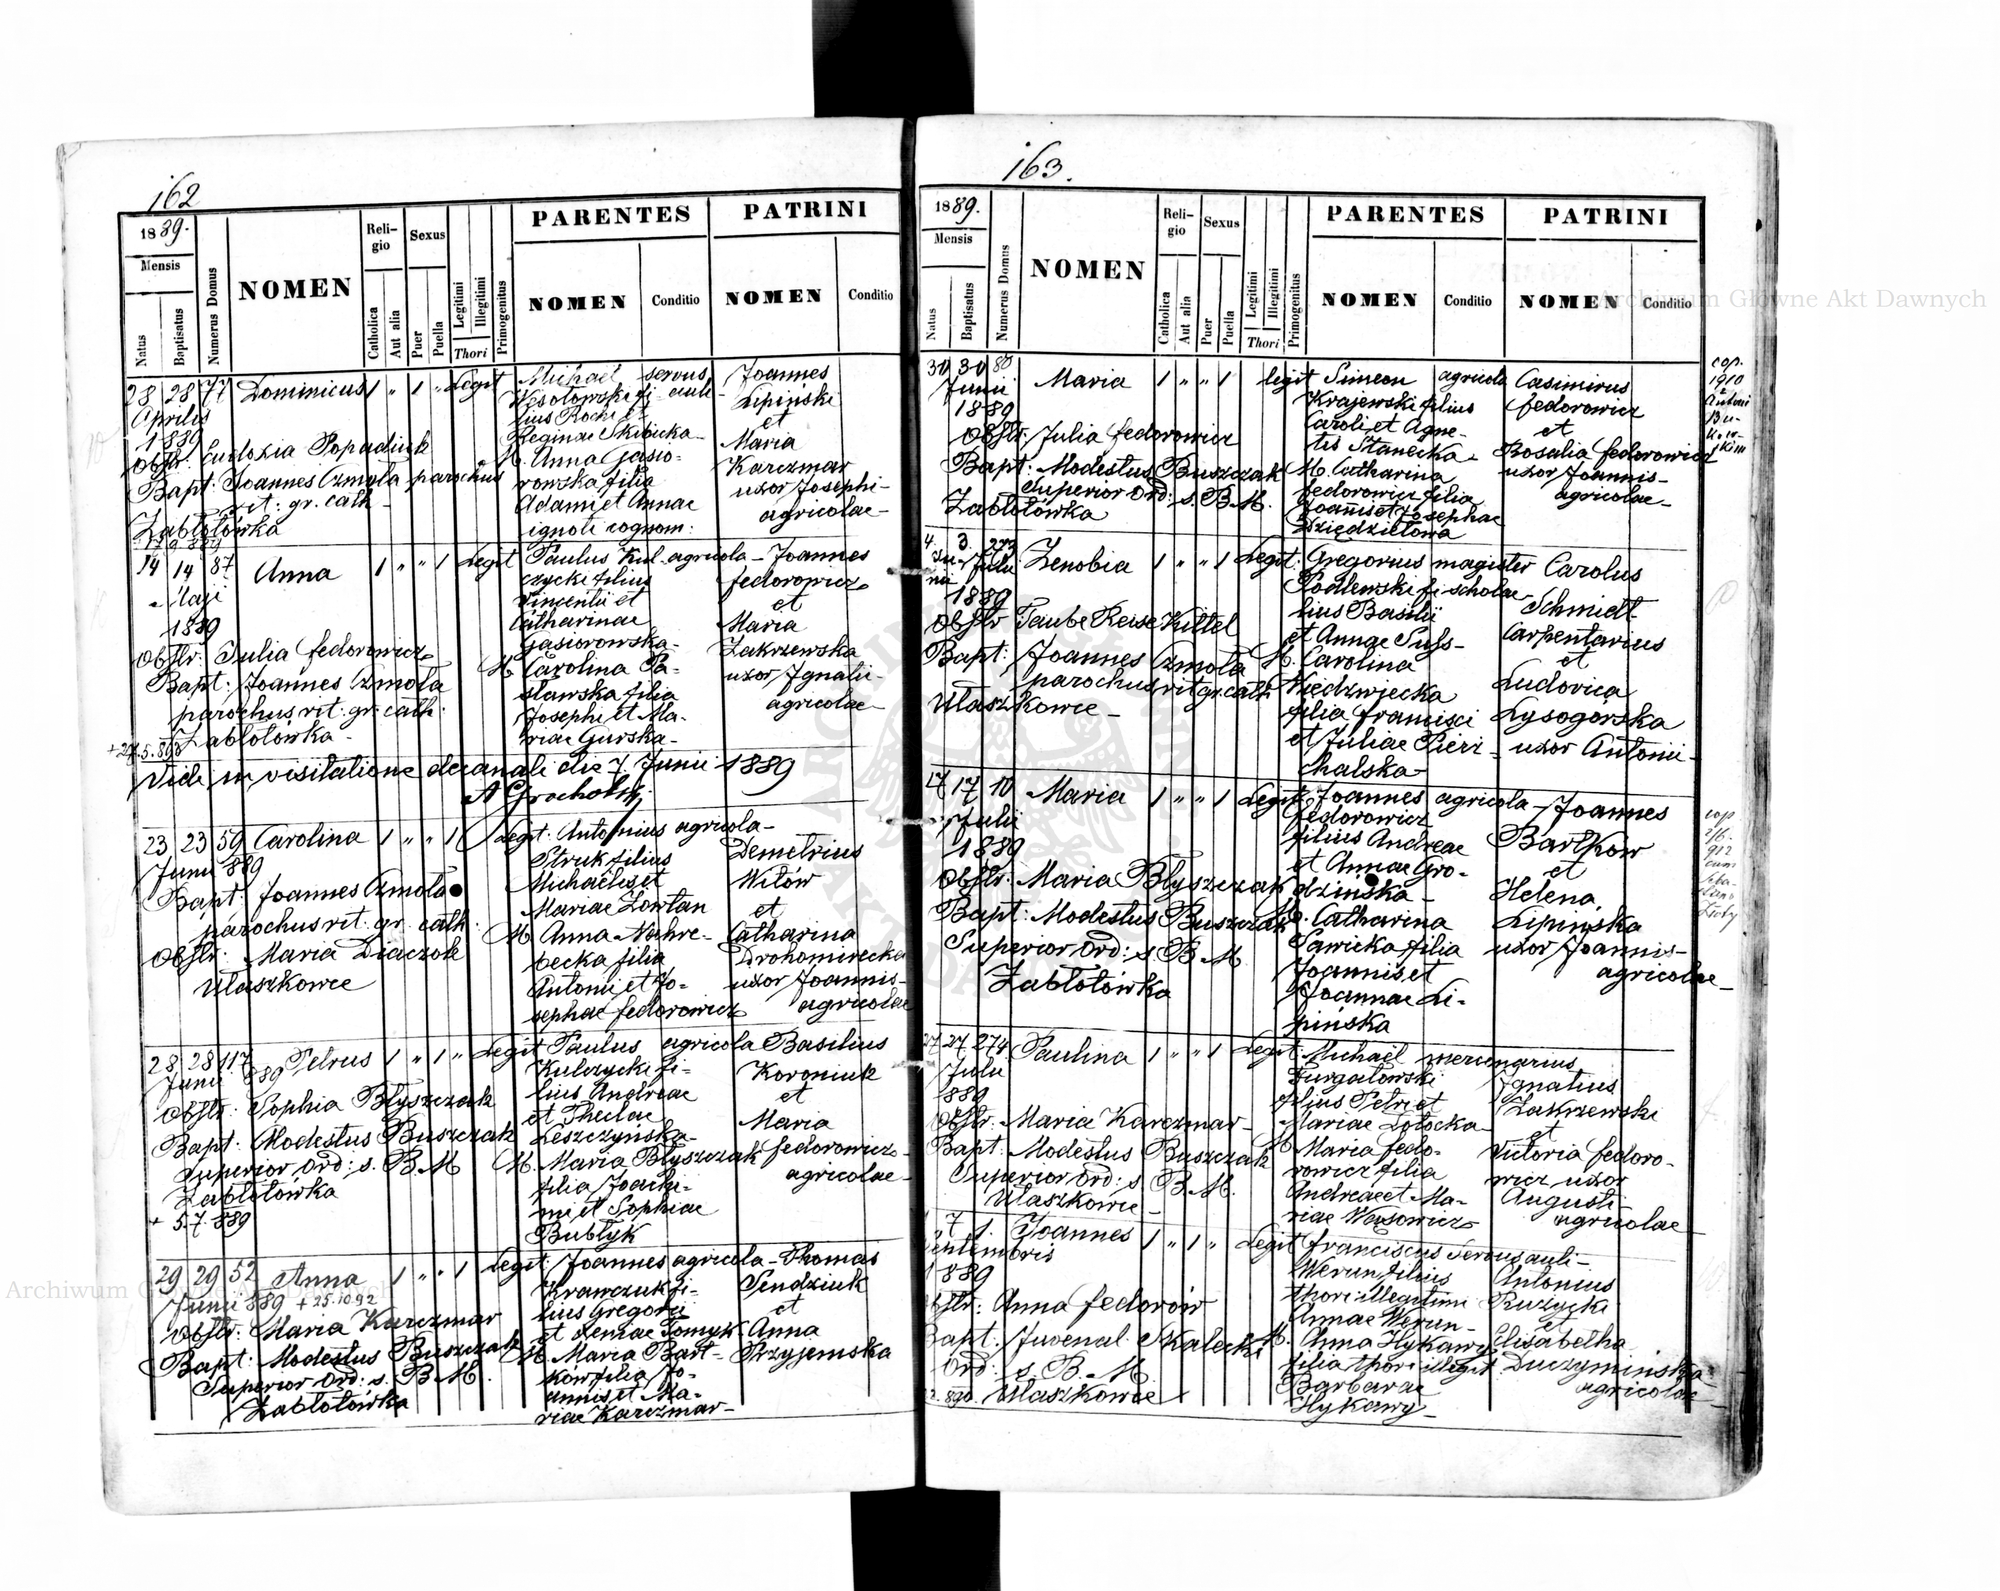 162
1889.
Mensis
Natus
Baptisatus
Numerus Domus
NOMEN
Reli-
gio
Catholica
Aut alia
Sexus
Puer
Puella
Legitimi
Illegitimi
Thori
Primogenitus
PARENTES
NOMEN
Conditio
PATRINI
NOMEN
Conditio
28 28 77 Dominicus 1 " 1 " Legit
Aprilis
1889
Obstr. Eudoxia Popadiuk
Bapt: Joannes Czmola parochus
rit: gr. cath
Zabłotówka
Michael servus
Wesołowski fi- auli-
lius Rochi et
Reginae Skibicka
M. Anna Gąsio-
rowska filia
Adami et Annae
ignoti cognom:
Joannes
Lipiński
et
Maria
Karczmar
uxor Josephi-
agricolae-
14 14 87 Anna 1 " " 1 Legit
Maji
1889
Obstr: Julia Fedorowicz
Bapt: Joannes Czmola
parochus rit. gr. cath.
Zabłotówka-
Paulus Kul- agricola-
czycki filius
Vincentii et
Catharinae
Gąsiorowska-
M Carolina Pa-
sławska filia
Josephi et Ma-
riae Gurska-
Joannes
Fedorowicz
et
Maria
Zakrzewska
uxor Ignatii-
agricolae-
Vidi in visitatione decanali die 7 Junii 1889
A Grocholski
23 23 59 Carolina 1 " " 1 Legit:
Junii 889
Bapt: Joannes Czmola
parochus rit. gr. cath.
Obstr: Maria Diaczok
Ułaszkowce
Antonius agricola-
Struk filius
Michaelis et
Mariae Zowtan
M Anna Nahre-
becka filia
Antonii et Jo-
sephae Fedorowicz
Demetrius
Witów
et
Catharina
Drohomirecka
uxor Joannis-
agricolae
28 28 117 Petrus 1 " 1 " Legit
Junii 889
Obstr: Sophia Błyszczak
Bapt: Modestus Buszczak
Superior Ord: s. B. M
Zabłotówka
+ 5.7.889
Paulus agricola
Kulczycki fi-
lius Andreae
et Theclae
Leszczyńska-
M. Maria Błyszczak
filia Joachi-
mi et Sophiae
Bubłyk
Basilius
Koroniuk
et
Maria
Fedorowicz-
agricolae-
29 29 52 Anna 1 " " 1 Legit
Junii 889 + 25.10.92
Obstr: Maria Karczmar
Bapt: Modestus Buszczak
Superior Ord: s. B. M.
Zabłotówka
Joannes agricola-
Krawczuk fi-
lius Gregorii
et Xeniae Tomyk-
M. Maria Bart-
ków filia Jo-
annis et Ma-
riae Karczmar-
Thomas
Sendziuk
et
Anna
Przyjemska
163.
1889.
Mensis
Natus
Baptisatus
Numerus Domus
NOMEN
Reli-
gio
Catholica
Aut alia
Sexus
Puer
Puella
Legitimi
Illegitimi
Thori
Primogenitus
PARENTES
NOMEN
Conditio
PATRINI
NOMEN
Conditio
30 30 80 Maria 1 " " 1 legit
Junii
1889
Obstr. Julia Fedorowicz
Bapt: Modestus Buszczak
Superior Ord: s. B. M.
Zabłotówka
Simeon agricola
Krajewski filius
Caroli et Agne-
tis Stanecka-
M. Catharina
Fedorowicz filia
Joannis et Josephae
Dziędzielowa
Casimirus
Fedorowicz
et
Rosalia Fedorowicz
uxor Joannis-
agricolae-
cop.
1910
Antoni
4. 3. 273 Zenobia 1 " " 1 Legit:
Ju- Julii
nii
1889
Obstr Taube Reise Kittel
Bapt: Joannes Czmola
parochus rit gr. cath
Ułaszkowce-
Gregorius magister
Podlewski fi- scholae-
lius Basilii
et Annae Suss-
M. Carolina
Niedzwiecka
filia Francisci
et Juliae Pierz-
chalska-
Carolus
Schmidt
Carpentarius
et
Ludovica
Łysogórska
uxor Antonii-
17 17 10 Maria 1 " " 1 Legit
Julii
1889
Obstr. Maria Błyszczak
Bapt: Modestus Buszczak
Superior Ord: s. B. M
Zabłotówka
Joannes agricola-
Fedorowicz
filius Andreae
et Annae Gro-
dzinska-
M. Catharina
Sawicka filia
Joannis et
Joannae Li-
pińska
Joannes
Bartkow
et
Helena
Lipińska
uxor Joannis-
agricolae-
cop
912
cum
27 27 274 Paulina 1 " " 1 Legit
Julii
889
Obstr. Maria Karczmar-
Bapt: Modestus Buszczak
Superior Ord: s. B. M.
Ułaszkowce-
Michaël mercenarius
Furgatowski
filius Petri et
Mariae Łotocka-
M. Maria Fedo-
rowicz filia
Andreae et Ma-
riae Wąsowicz-
Ignatius
Zakrzewski
et
Victoria Fedoro-
wicz uxor
Augusti
agricolae-
7 1. Joannes 1 " 1 " Legit
Septembris
1889
Obstr: Anna Fedorów
Bapt: Juvenal Skalecki
Ord: s. B. M.
Ułaszkowce
Franciscus servus auli-
Werun filius
thori illegitimi
Annae Werun-
M. Anna Hykawy
filia thori illegit
Barbarae
Hykawy-
Antonius
Ruzycki
et
Elisabetha
Duczymińska
agricolae-
Archiwum Główne Akt Dawnych
Archiwum Główne Akt Dawnych